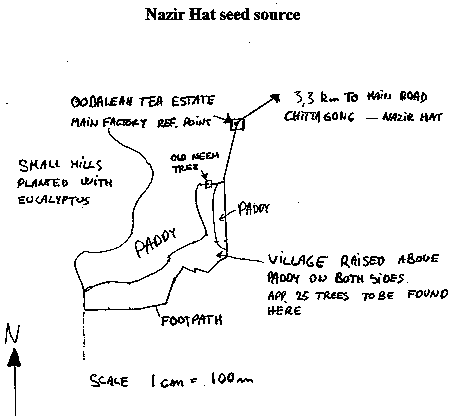 Nazir Hat seed source
ODALEAH TEA ESTATE
MAIN FACTORY REF. POINT
3,3 km TO MAIN ROAD
CHITTAGONG – NAZIR HAT
SMALL HILLS
PLANTED WITH
EUCALYPTUS
OLD NEEM
TREE
PADDY
PADDY
VILLAGE RAISED ABOVE
PADDY ON BOTH SIDES.
APP. 25 TREES TO BE FOUND
HERE
FOOTPATH
N
SCALE 1 cm = 100 m